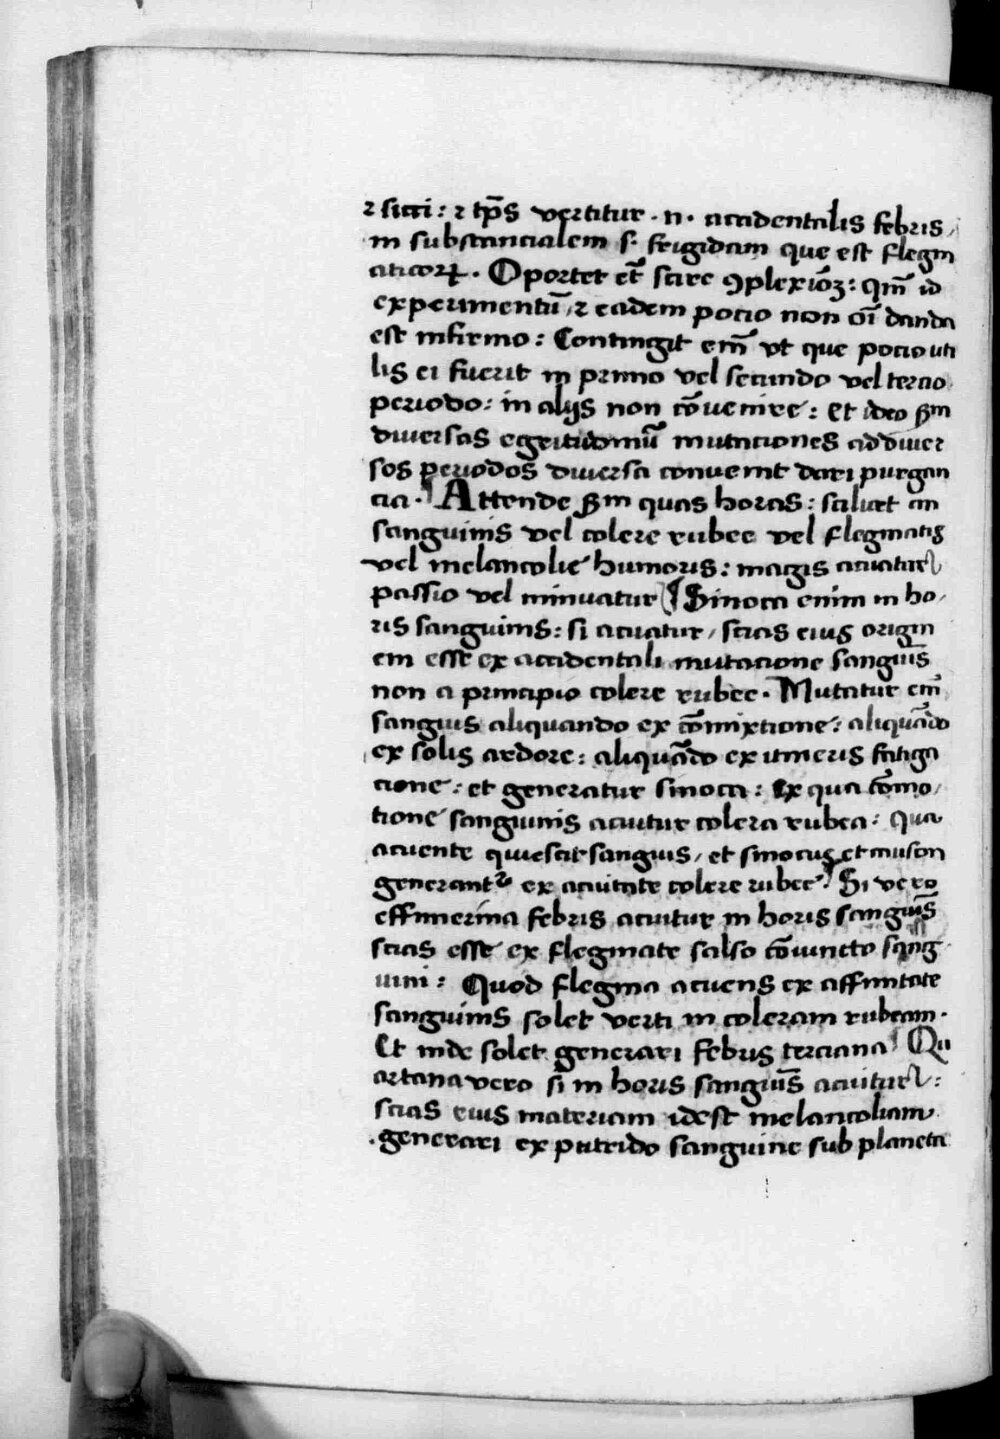 ⁊ sicci: ⁊ tp̄s vertitur · n · accidentalis febris,
in substancialem s· frigidam que est flegm
aticorꝝ · Oportet et̄ scire ꝯplexiōꝫ: qm̄ id
experimentū, ⁊ eadem pocio non oī danda
est infirmo: Contingit em̄ vt que pocio uti
lis ei fuerit in primo vel secundo vel tercio
periodo: in alijs non cōuenire: Et ideo ẜm
diuersas egritudinū mutaciones ad diuer
sos periodos diuersa conuenit dari purgan
cia · Attende ẜm quas horas: scilicet an
sanguinis vel colere rubee vel flegmatis
vel melancolie humoris: magis acuatur
passio vel minuatur ¶ Sinoca enim in ho,
ris sanguinis: si acuatur, scias eius origin
em esse ex accidentali mutacione sanguīs
non a principio colere rubee · Mutatur em̄
sanguis aliquando ex cōmixtione: aliquādo
ex solis ardore: aliquādo ex itineris fatiga
cione: et generatur sinoca: Ex qua cōmo,
tione sanguinis acuitur colera rubea: Qua
acuente quiescit sanguis, et sinocus et causon
generant᷑ ex acuitate colere rubee Si vero
effimerina febris acuitur in horis sanguīs
scias esse ex flegmate salso cōuincto sang
uini: Quod flegma acuens ex affinitate
sanguinis solet verti in coleram rubeam ·
Et inde solet generari febris terciana Qu
artana vero si in horis sanguīs acuitur:
scias eius materiam idest melancoliam
generari ex putrido sanguine sub planeta